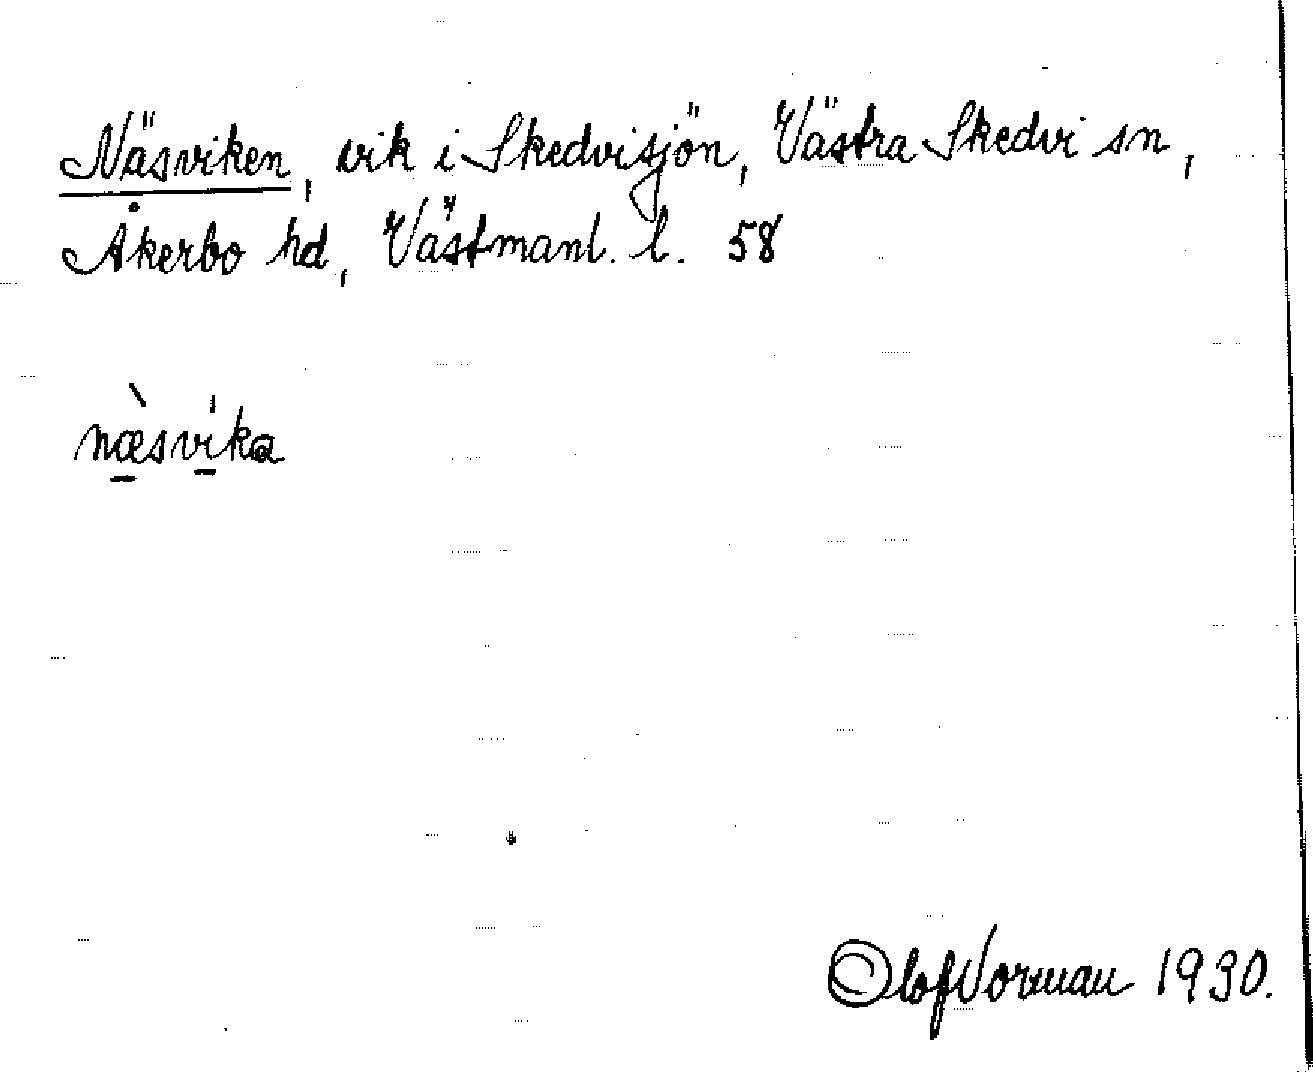 Näsviken, vik i Skedvisjön, Västra Skedvi sn,
Åkerbo hd, Västmanl. l. 58
næ̱̀svi̱̍ka
Olof Norman 1930.